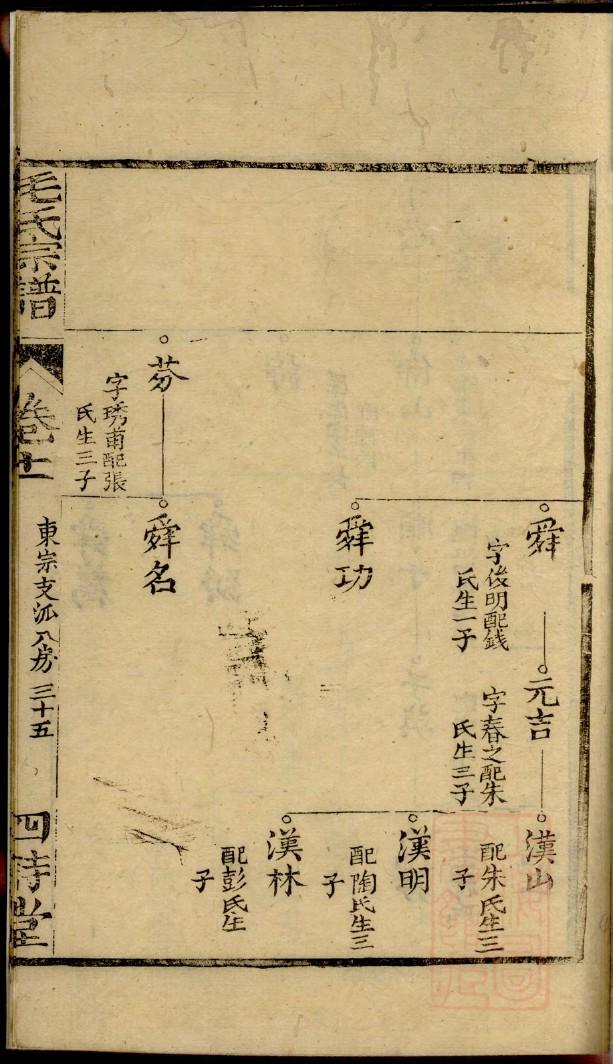 舜
字俊明配錢
氏生一子
元吉
字春之配朱
氏生三子
漢山
配朱氏生三
子
漢明
配陶氏生三
子
漢林
配彭氏生
子
舜功
芬
字琇甫配張
氏生三子
舜名
毛氏宗譜
卷十二
東宗支派八房 三十五
四詩堂